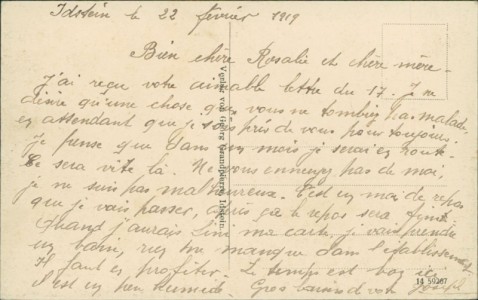 Idstein le 22 février 1919
Bien chère Rosalie et chère mère-
J'ai reçu votre aimable lettre du 17. Je ne
désire qu'une chose que vous ne tombiez pas malade
en attendant que je sois près de vous pour toujours.
je pense que dans un mois je serai en route.
Ce sera vite là. Ne vous ennuyez pas de moi,
je ne suis pas malheureux. C'est un mois de repos
que je vais passer, après ça le repos sera
Quand j'aurais fini ma carte, je vais prendre
un bain, rien ne manque dans l'établissement
Il faut en profiter. Le temps est bon ici
Il est un peu humide. Gros baisers de votre Joseph
Verlag von Georg Grandpierre, Idstein.
14 59267